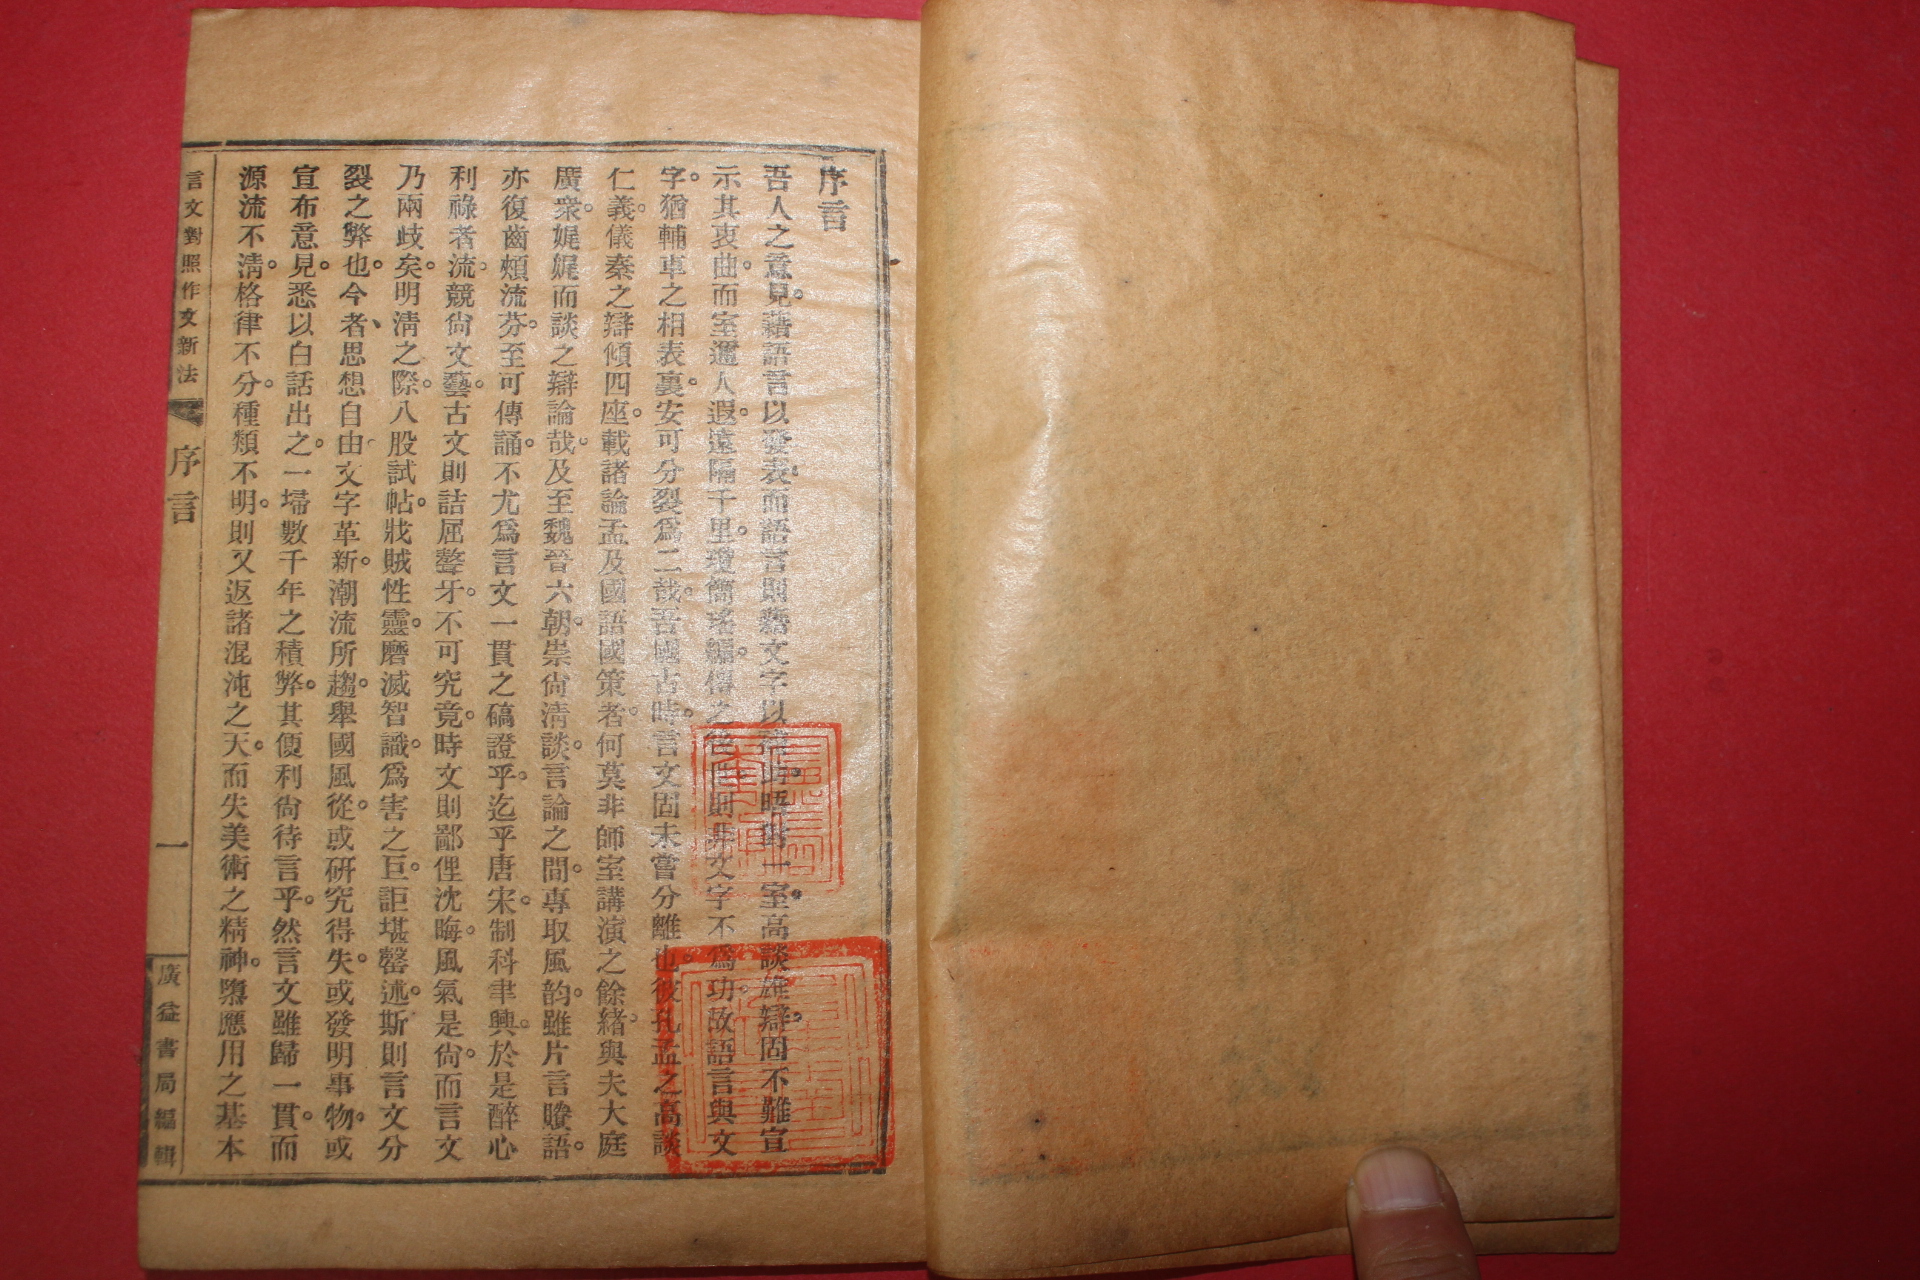 序言
吾人之意見。藉語言以發表。而語言則藉文字以 晤對一室。高談雄辯。固不難宣
示其衷曲。而室邇人遐。遠隔千里。瓊簡瑤編。傳之 則非文字不爲功。故語言與文
字。猶輔車之相表裏。安可分裂爲二哉。吾國古時。言文固未嘗分離也。彼孔孟之高談
仁義。儀秦之辯傾四座。載諸論孟及國語國策者。何莫非師室講演之餘緒。與夫大庭
廣衆。娓娓而談之辯論哉。及至魏晉六朝。崇尙清談。言論之間。專取風韵。雖片言賸語。
亦復齒頰流芬。至可傳誦。不尤爲言文一貫之碻證乎。迄乎唐宋。制科聿興。於是醉心
利祿者流。競尙文藝。古文則詰屈聱牙。不可究竟。時文則鄙俚沈晦。風氣是尙。而言文
乃兩歧矣。明清之際。八股試帖。戕賊性靈。磨滅智識。爲害之巨。詎堪罄述。斯則言文分
裂之弊也。今者、思想自由。文字革新。潮流所趨。舉國風從。或硏究得失。或發明事物。或
宣布意見。悉以白話出之。一埽數千年之積弊。其便利尙待言乎。然言文雖歸一貫。而
源流不淸。格律不分。種類不明。則又返諸混沌之天。而失美術之精神。隳應用之基本
言文對照作文新法
序言
一
廣益書局編輯